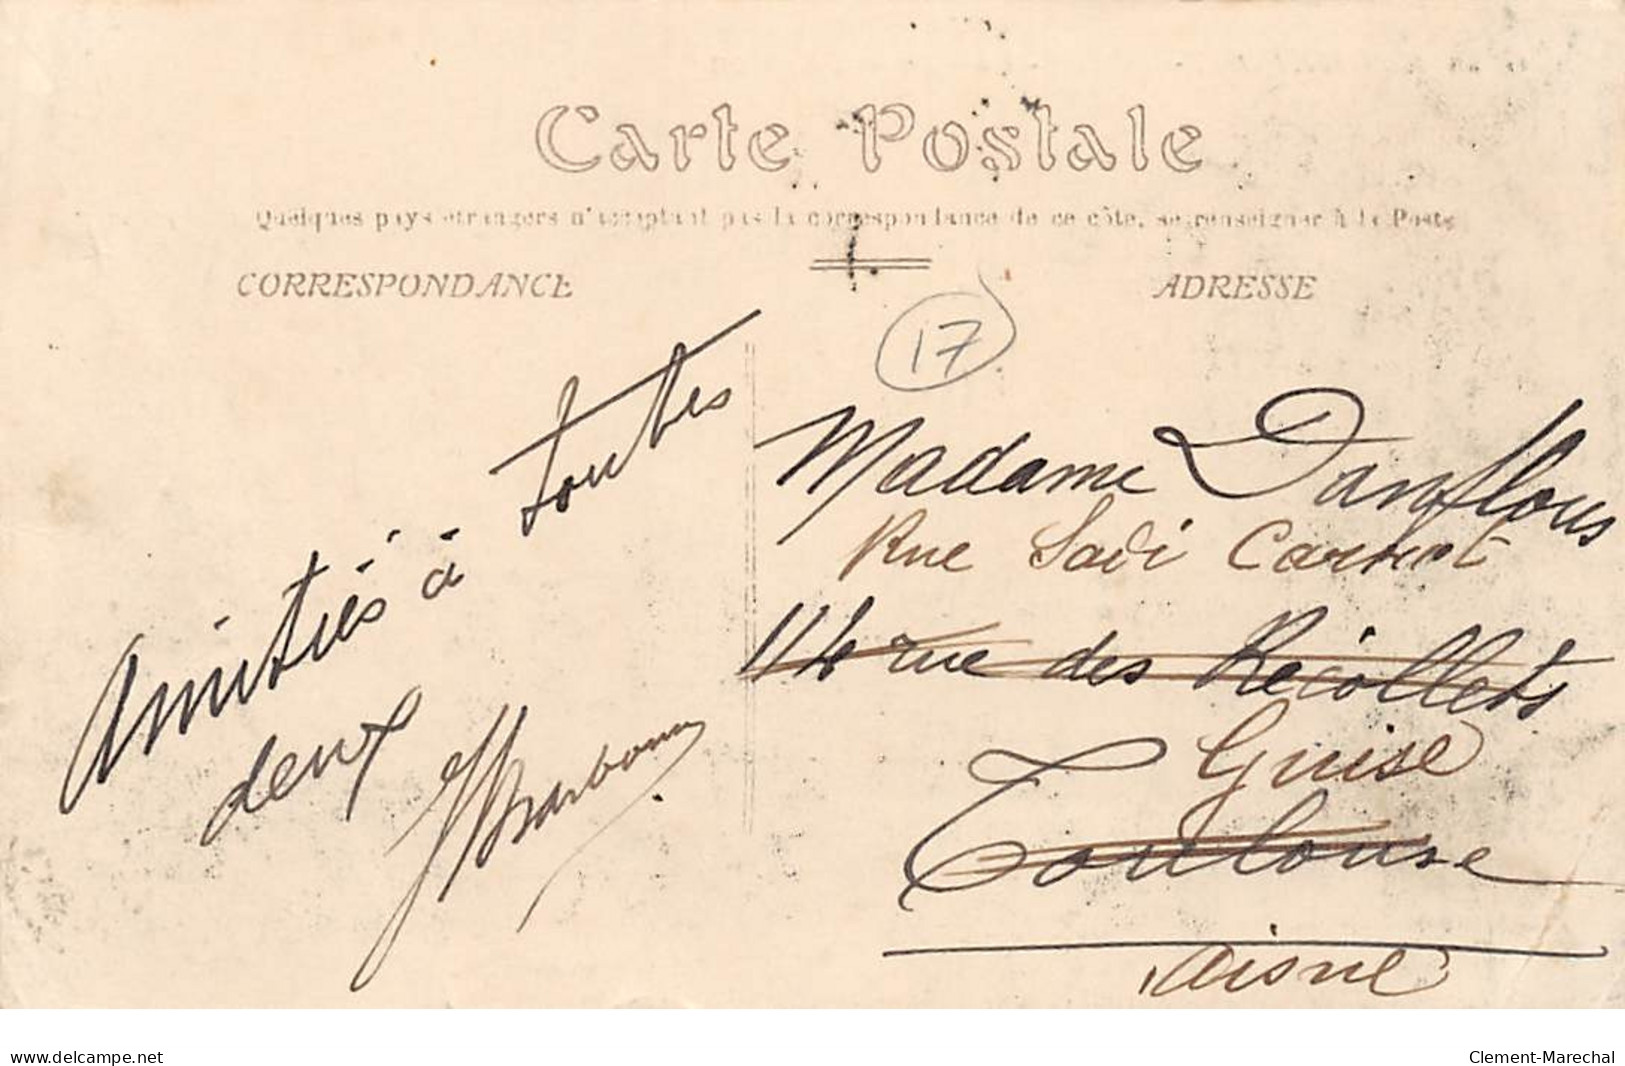 Carte Postale
Quelques pays étrangers n'acceptant pas la correspondance de ce côté, se renseigner à la Poste
CORRESPONDANCE
ADRESSE
17
Amitiés à toutes
deux
Madame Danflous
Rue Sadi Carnot
114 rue des Récollets
Guise
Toulouse
Aisne
delcampe.net
Clement-Marechal